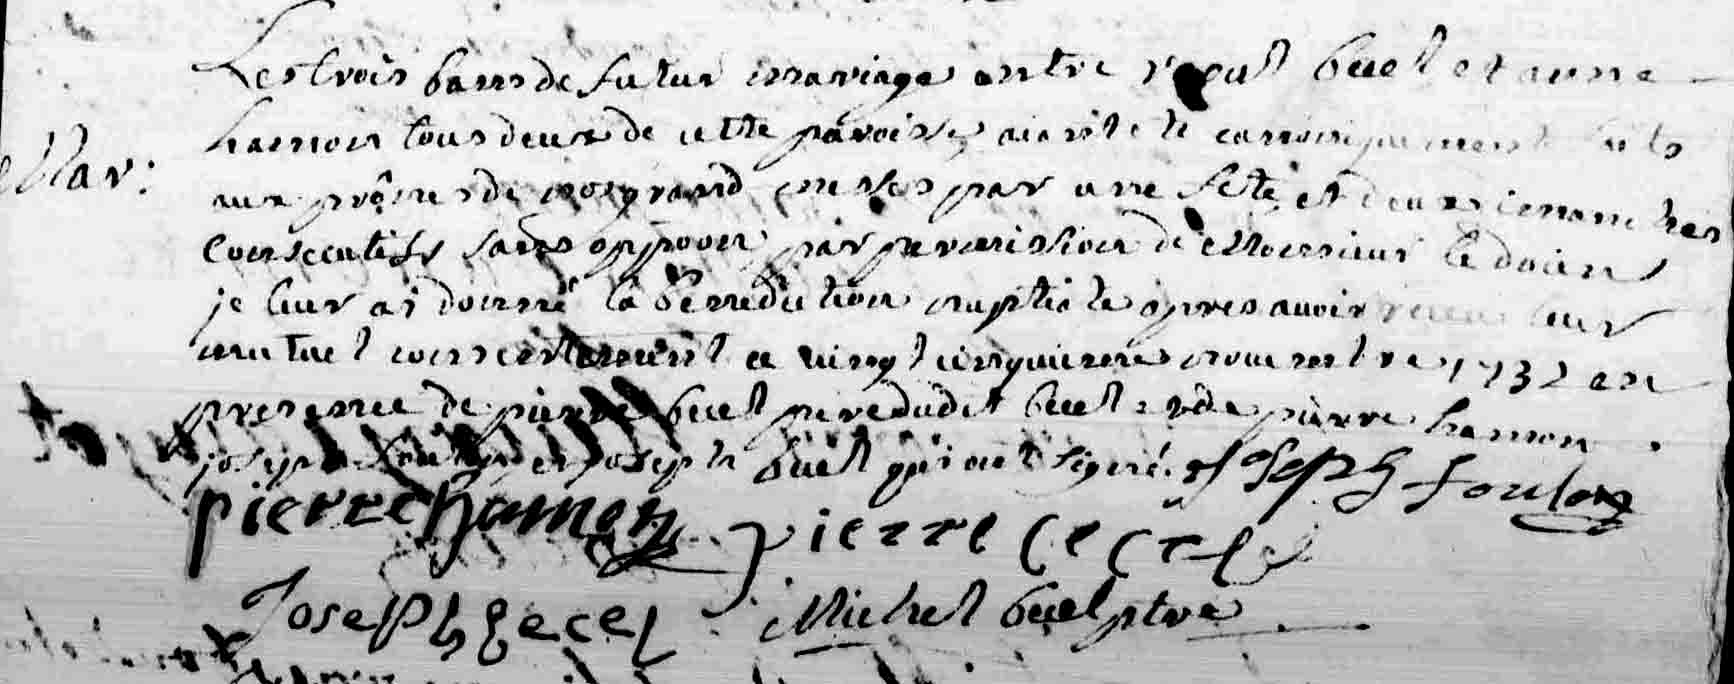 Les trois bans de futur mariage entre buel et anne
Mar: hamon tous deux de cette paroisse aiant ete canoniquement faits
aux prônes de nos grand messes par une fete et deux dimanches
consecutifs sans opposon par permission de Monsieur le doien
je leur ai donné la bénédiction nuptiale apres avoir receu leur
mutuel consentement ce vingt cinquieme novembre 1732 en
presence de pierre buel pere dudit buel et de pierre hamon
joseph foulon et joseph buel qui ont signé. Joseph foulon
pierre hamon pierre
Joseph Michel buel ptre